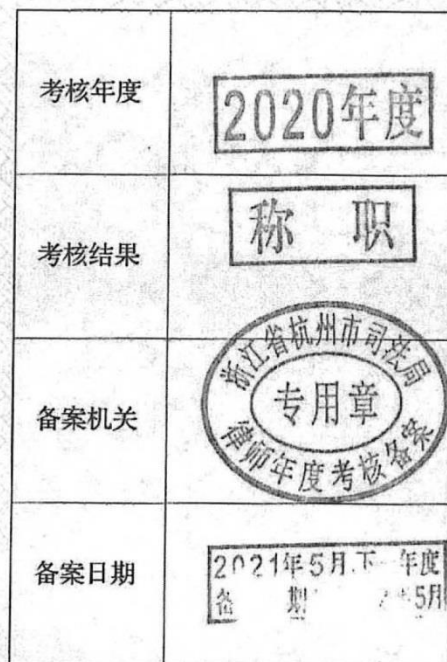 考核年度
2020年度
考核结果
称 职
备案机关
浙江省杭州市司法局
专用章
律师年度考核备案
备案日期
2021年5月.下 年度
备 期 5月